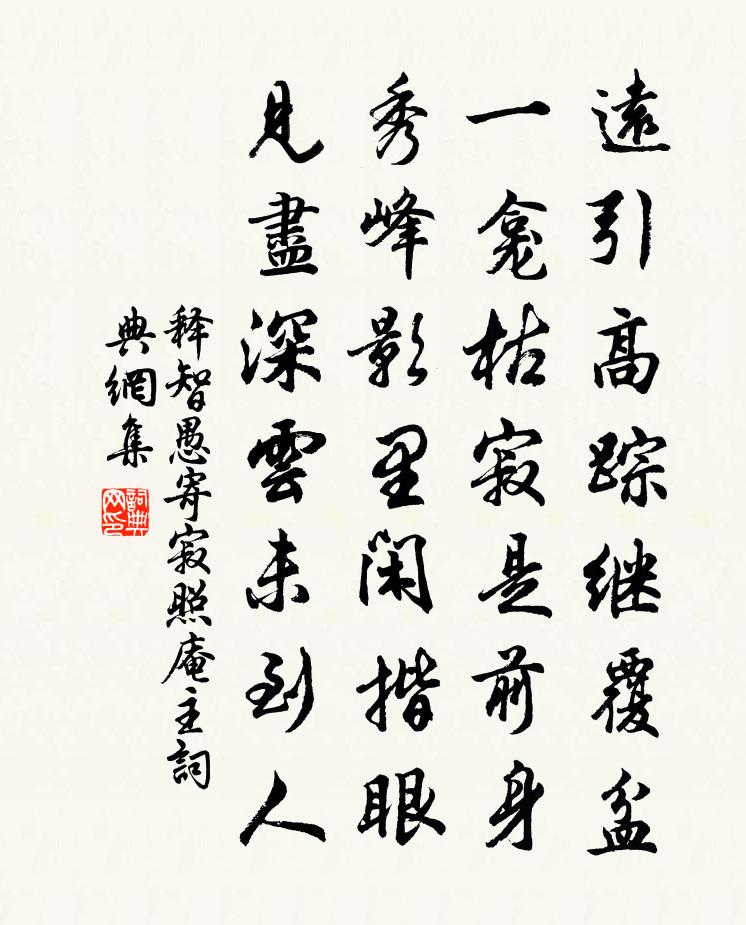 遠引高踪继覆盆
一龛枯寂是前身
秀峰影里闲揩眼
見盡深雲未到人
释智愚寄寂照庵主詞
典網集
詞典网印